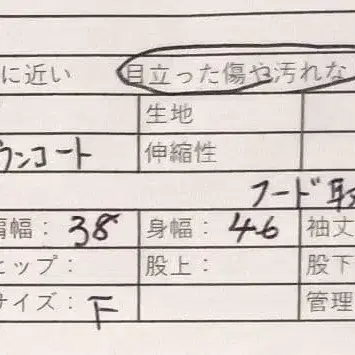 に近い 目立った傷や汚れな
生地
ウンコート 伸縮性
フード
肩幅： 38 身幅： 46 袖丈
ヒップ： 股上： 股下
サイズ： F 管理